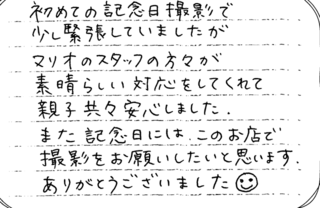 初めての記念日撮影で
少し緊張していましたが
マリオのスタッフの方々が
素晴らしい対応をしてくれて
親子共々安心しました.
また記念日には、このお店で
撮影をお願いしたいと思います.
ありがとうございました☺